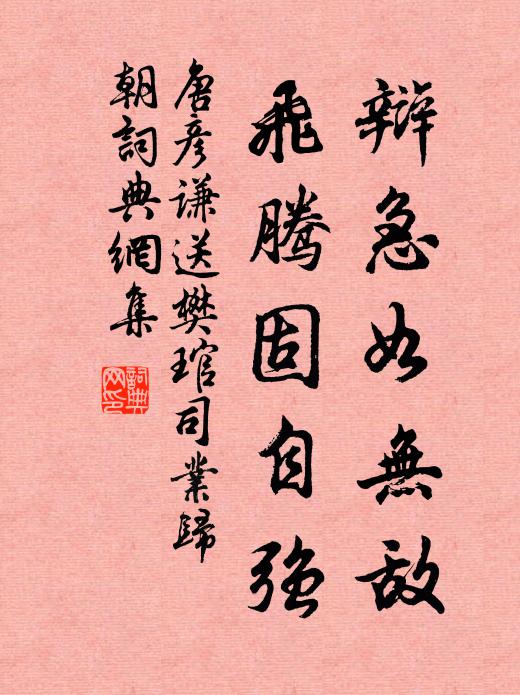 辯急如無敌
飛騰固自强
唐彦谦送樊琯司業歸
朝詞典網集
詞典
网印